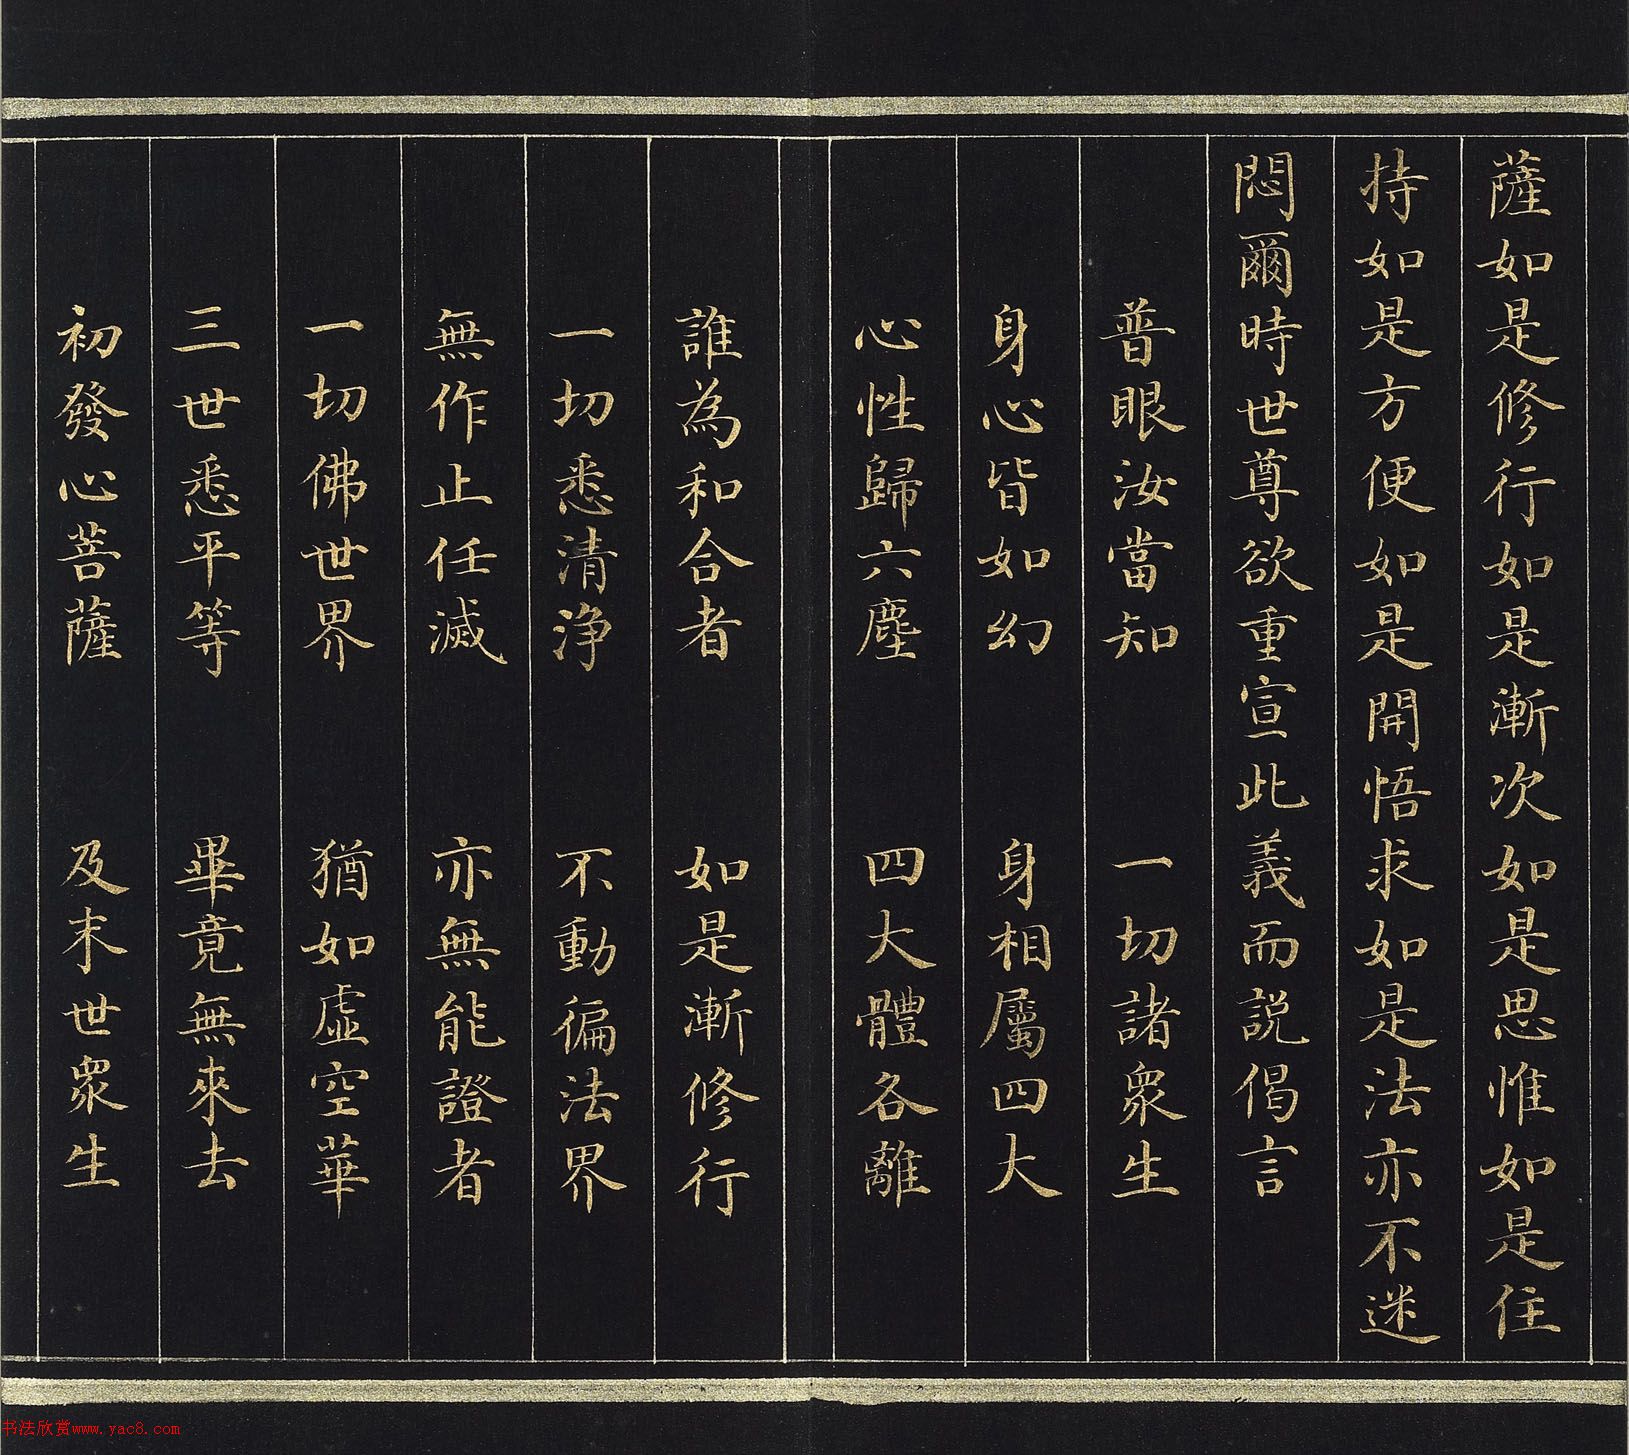 薩如是修行如是漸次如是思惟如是住
持如是方便如是開悟求如是法亦不迷
悶爾時世尊欲重宣此義而説偈言
普眼汝當知 一切諸眾生
身心皆如幻 身相屬四大
心性歸六塵 四大體各離
誰為和合者 如是漸修行
一切悉清淨 不動徧法界
無作止任滅 亦無能證者
一切佛世界 猶如虛空華
三世悉平等 畢竟無來去
初發心菩薩 及末世眾生
书法欣赏www.yac8.com